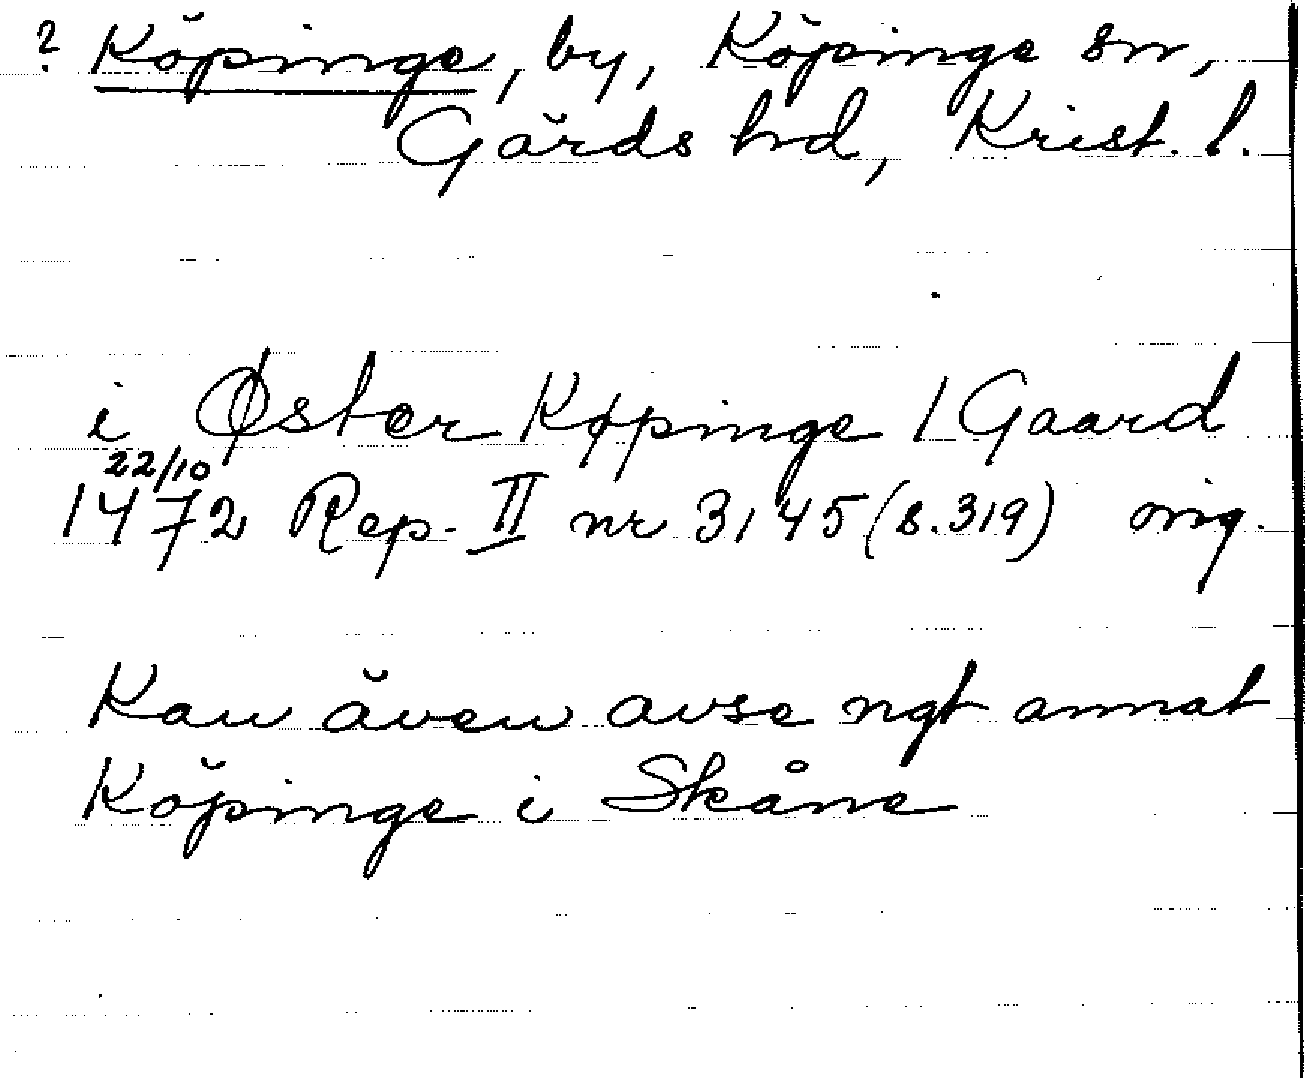 ? Köpinge, by, Köpinge sn,
Gärds hd, Krist. l.
i Øster Køpinge 1 Gaard
22/10
1472 Rep. II nr 3145 (s. 319) orig.
Kan även avse ngt annat
Köpinge i Skåne